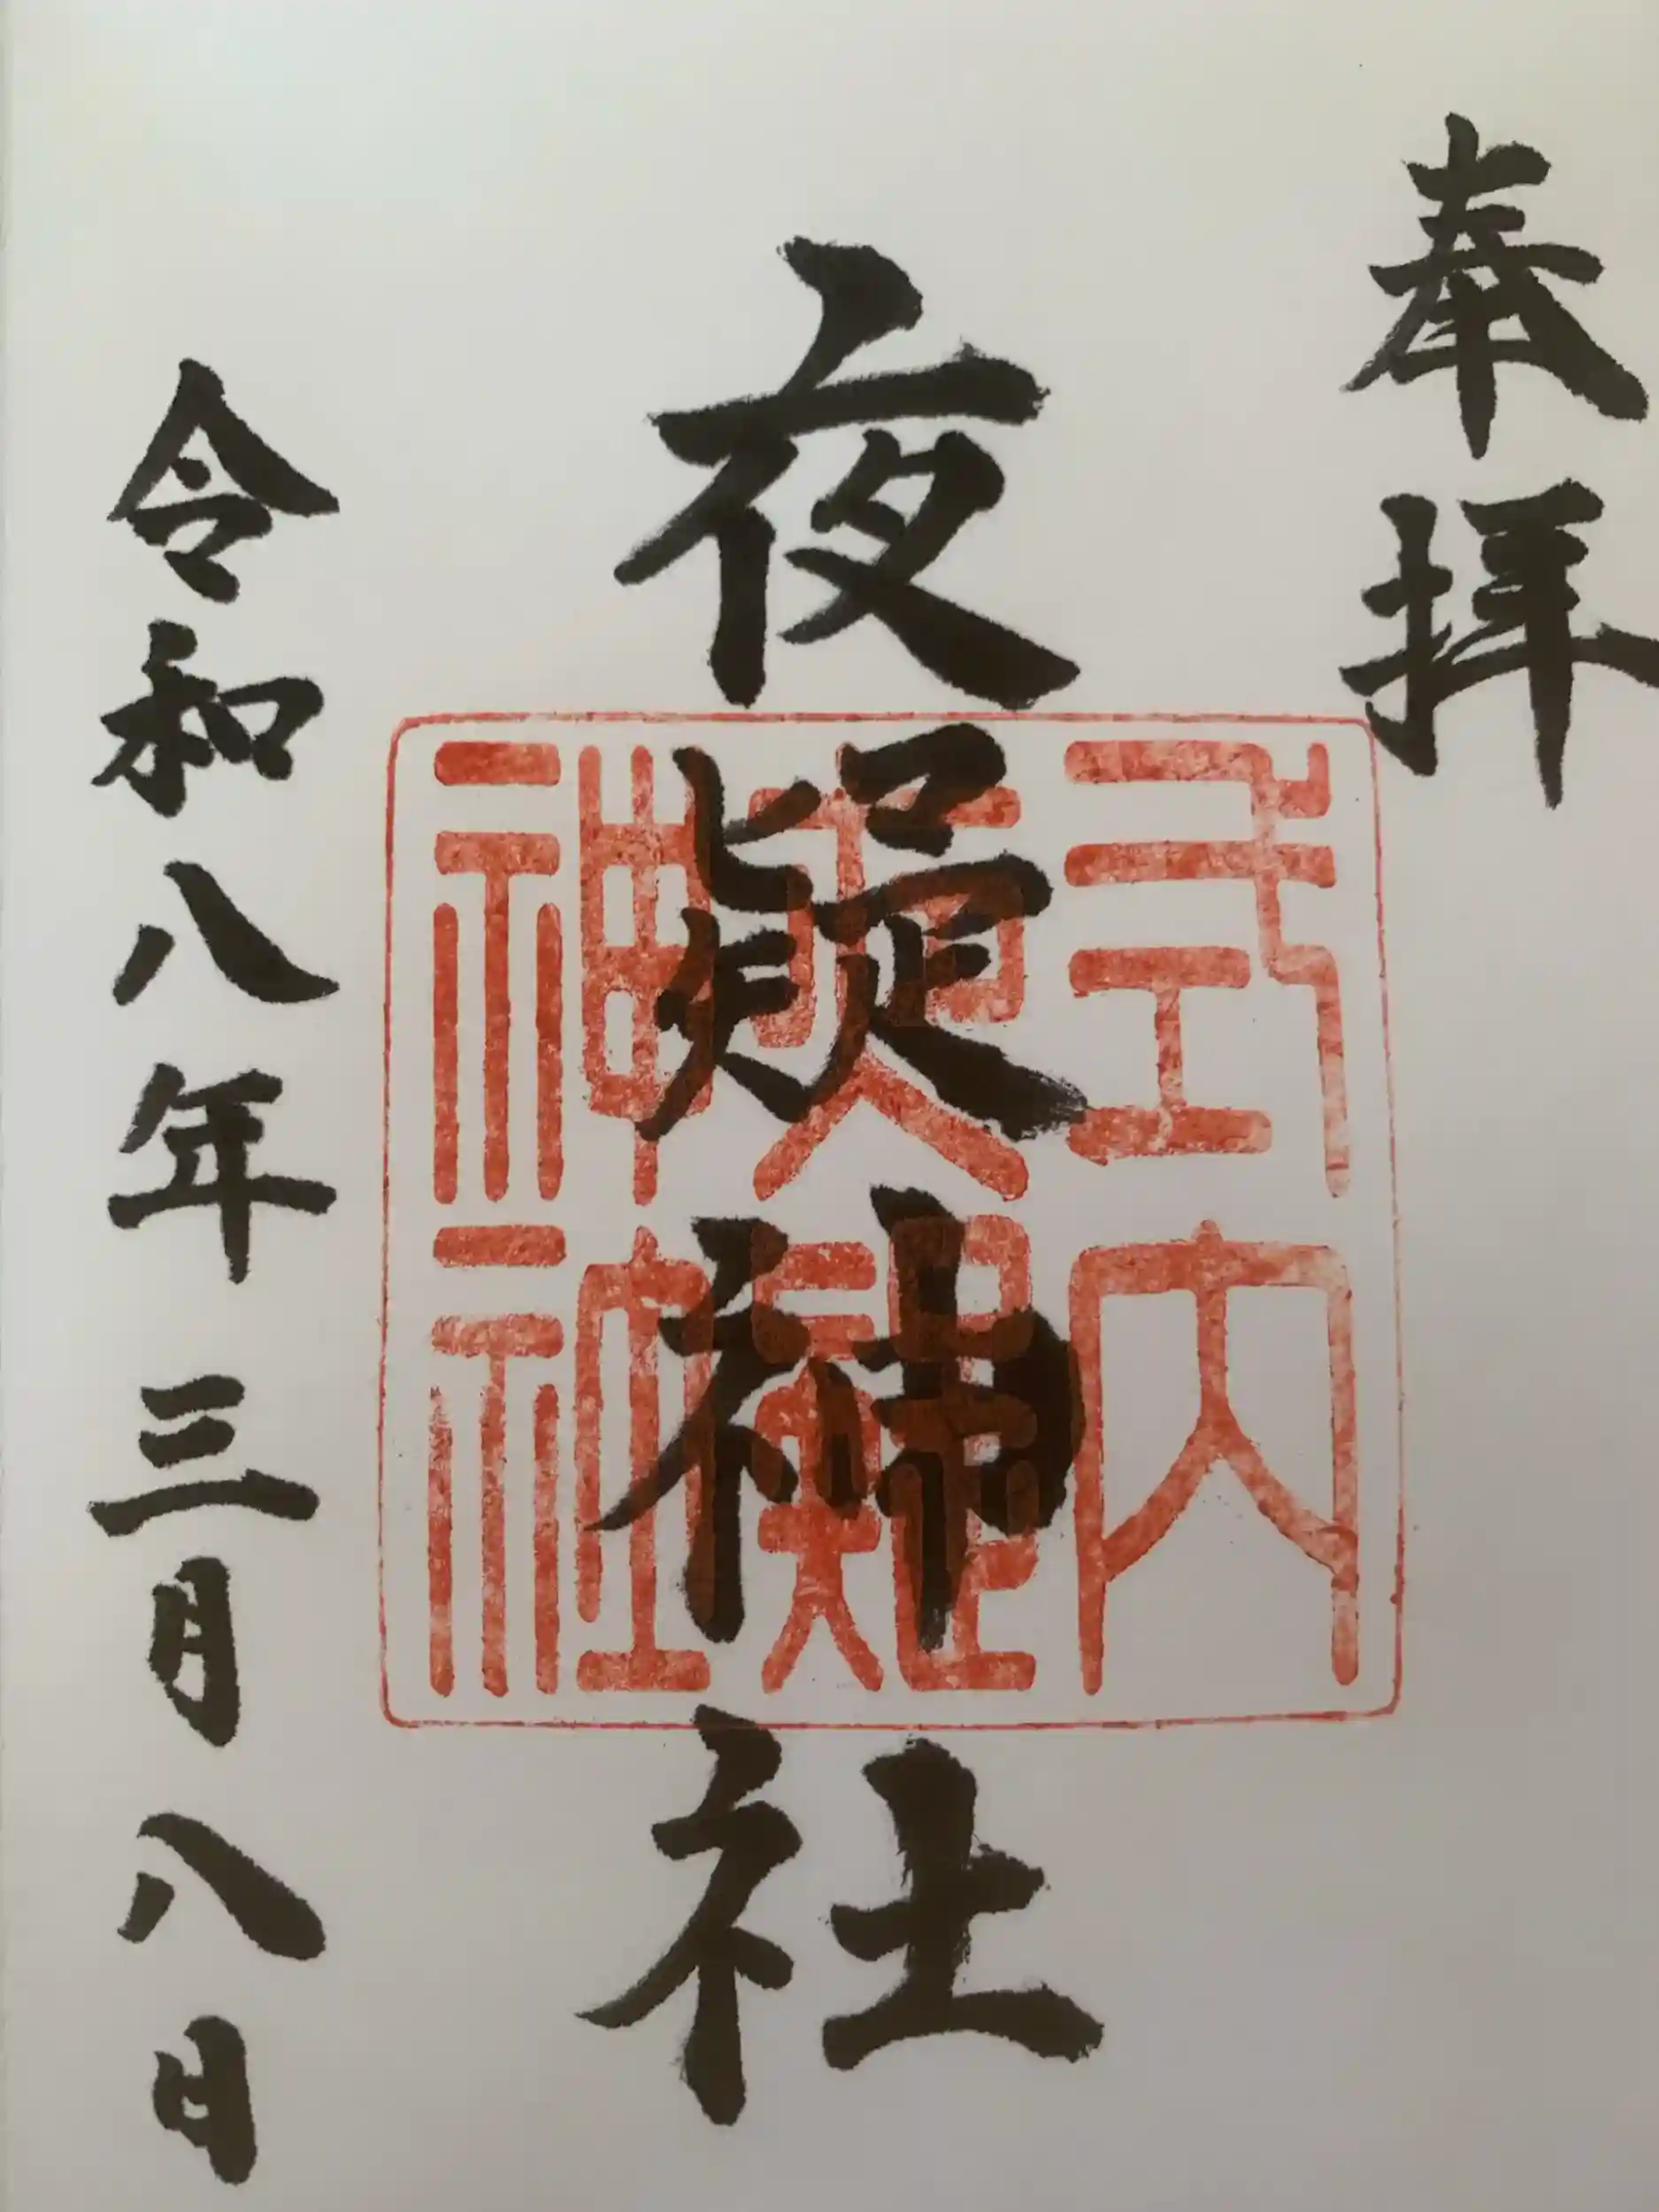 奉拝
夜疑神社
式内
夜疑
神社
令和八年三月八日